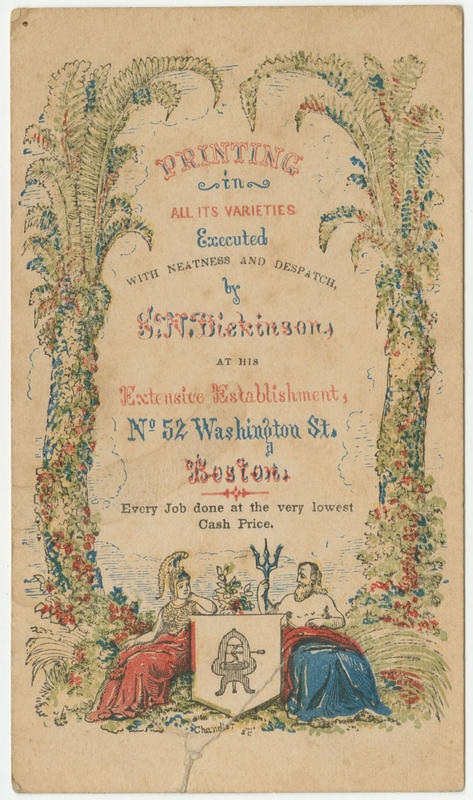 PRINTING
in
ALL ITS VARIETIES
Executed
WITH NEATNESS AND DESPATCH,
by
S. N. Dickinson,
AT HIS
Extensive Establishment,
No 52 Washington St.
Boston.
Every Job done at the very lowest
Cash Price.